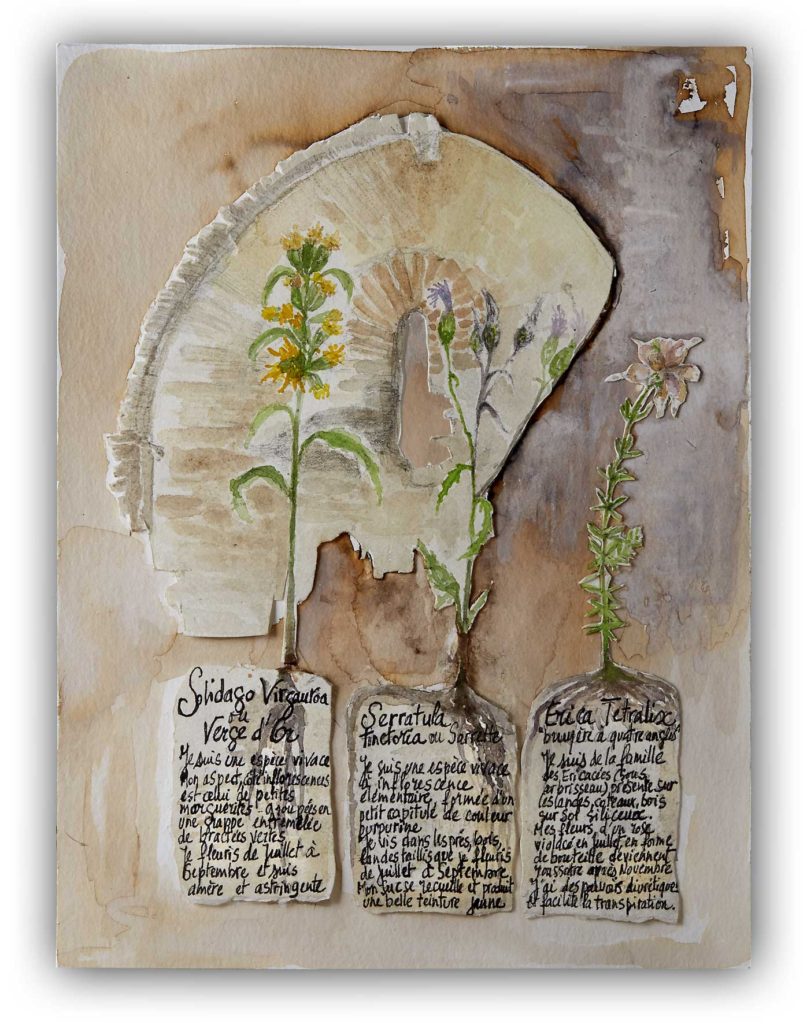 Solidago Virgaurea
ou
Verge d'Or
Je suis une espèce vivace
Mon aspect, côté inflorescences
est celui de petites
marguerites groupées en
une grappe entremêlée
de bractées vertes
Je fleuris de Juillet à
Septembre et suis
amère et astringente
Serratula
Tinctoria ou Serrette
Je suis une espèce vivace
à inflorescence
élémentaire, formée d'un
petit capitule de couleur
purpurine
Je vis dans les prés, bois,
landes taillis que je fleuris
de Juillet à Septembre
Mon suc se recueille et produit
une belle teinture jaune
Erica Tetralix,
"bruyère à quatre angles"
Je suis de la famille
des Ericacées (sous
arbrisseau) présente sur
les landes, coteaux, bois
sur sol siliceux.
Mes fleurs d'un rose
violacé en Juillet, en forme
de bouteille deviennent
roussatre après Novembre
J'ai des pouvoirs diurétiques
et facilite la transpiration.